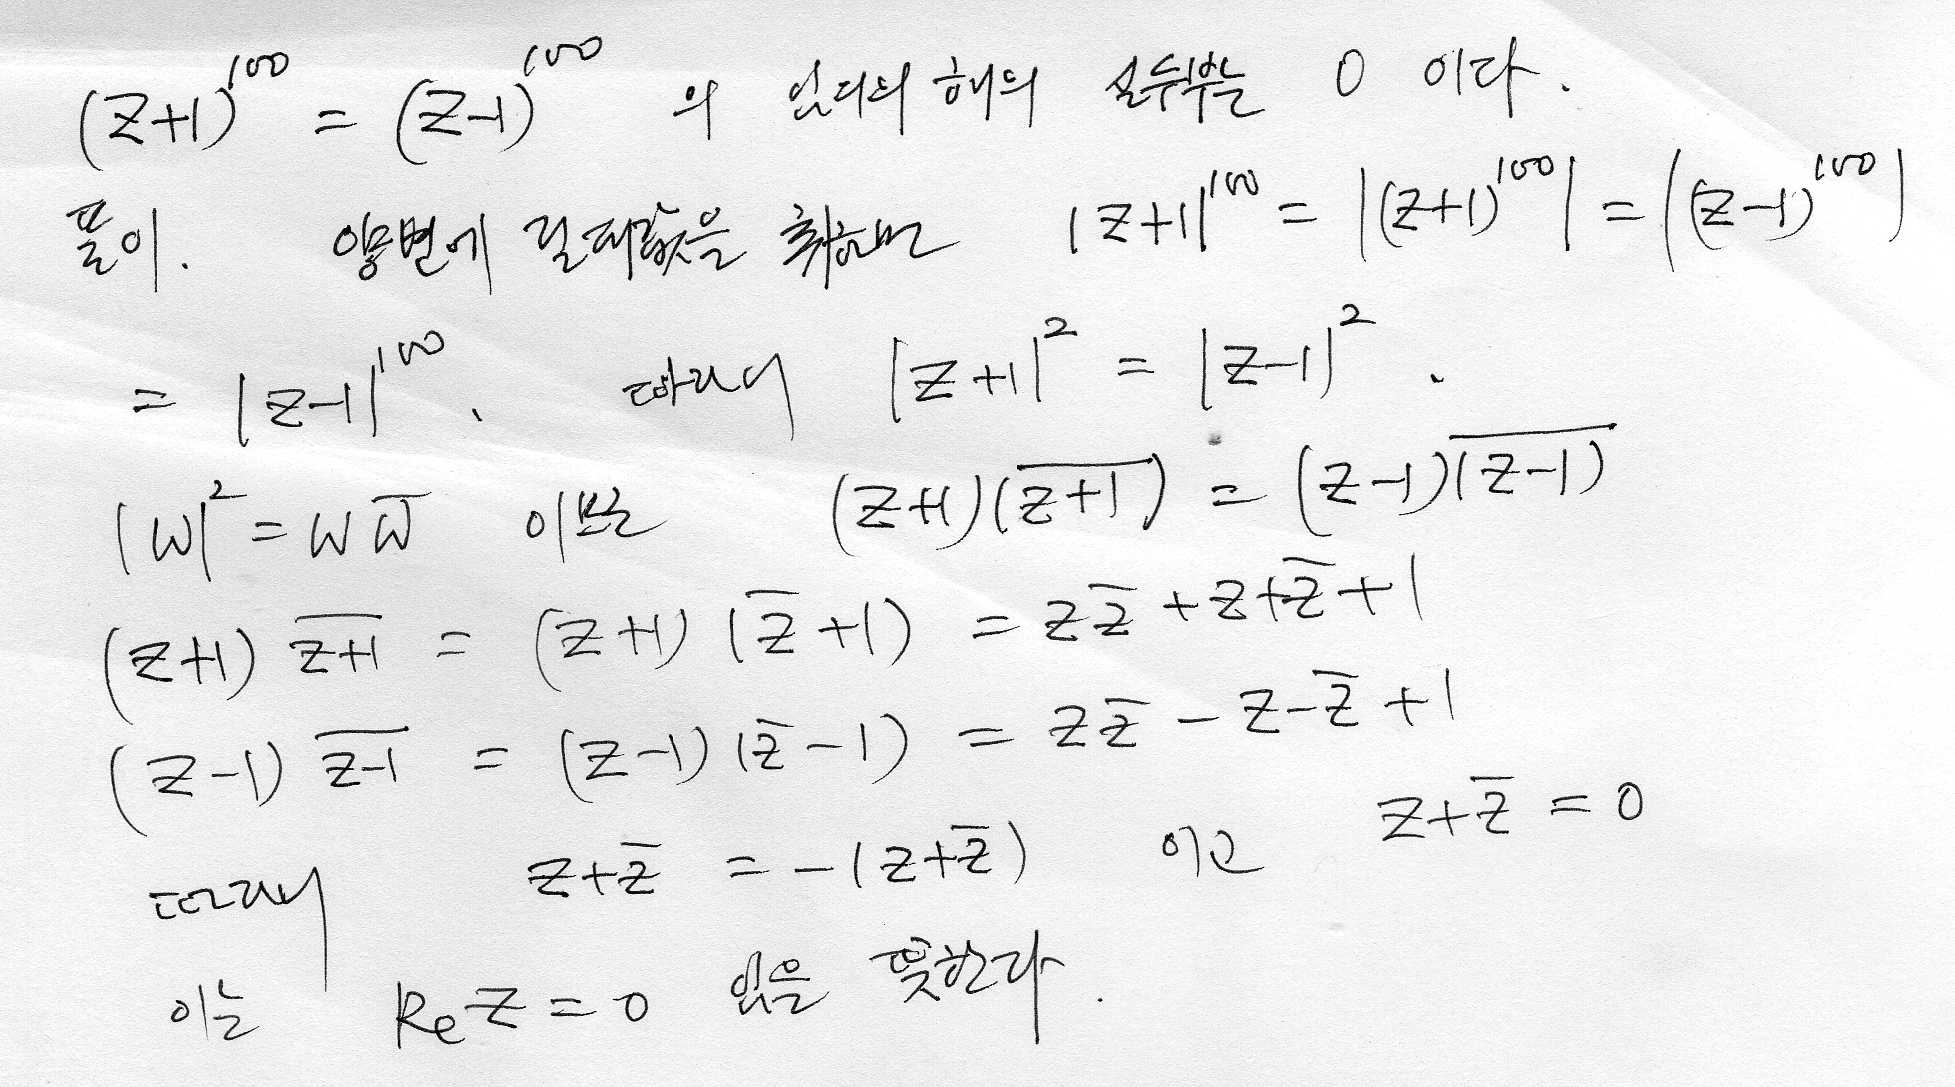 (z+1)^100 = (z-1)^100 의 임의의 해의 실수부는 0 이다.
풀이. 양변에 절대값을 취하면 |z+1|^100 = |(z+1)^100| = |(z-1)^100|
= |z-1|^100. 따라서 |z+1|^2 = |z-1|^2.
|w|^2 = w w̅ 이므로 (z+1)(\overline{z+1}) = (z-1)\overline{(z-1)}
(z+1) \overline{z+1} = (z+1)(z̅+1) = zz̅ + z + z̅ + 1
(z-1) \overline{z-1} = (z-1)(z̅-1) = zz̅ - z - z̅ + 1
따라서 z+z̅ = -(z+z̅) 이고 z+z̅ = 0
이는 Re z = 0 임을 뜻한다.